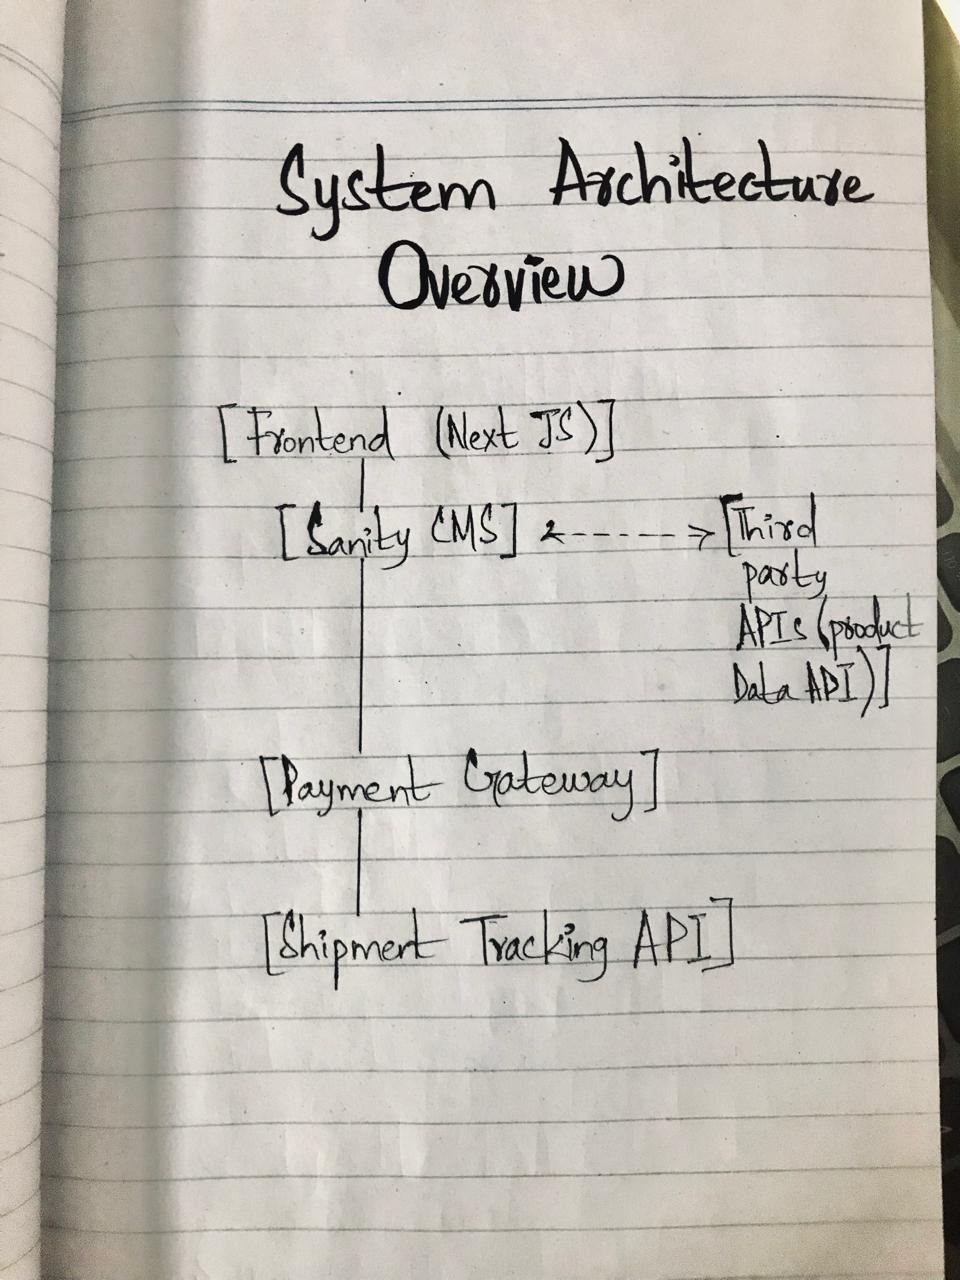 System Architecture
Overview
[Frontend (Next JS)]
[Sanity CMS] <-----> [Third
party
APIs (product
Data API)]
[Payment Gateway]
[Shipment Tracking API]